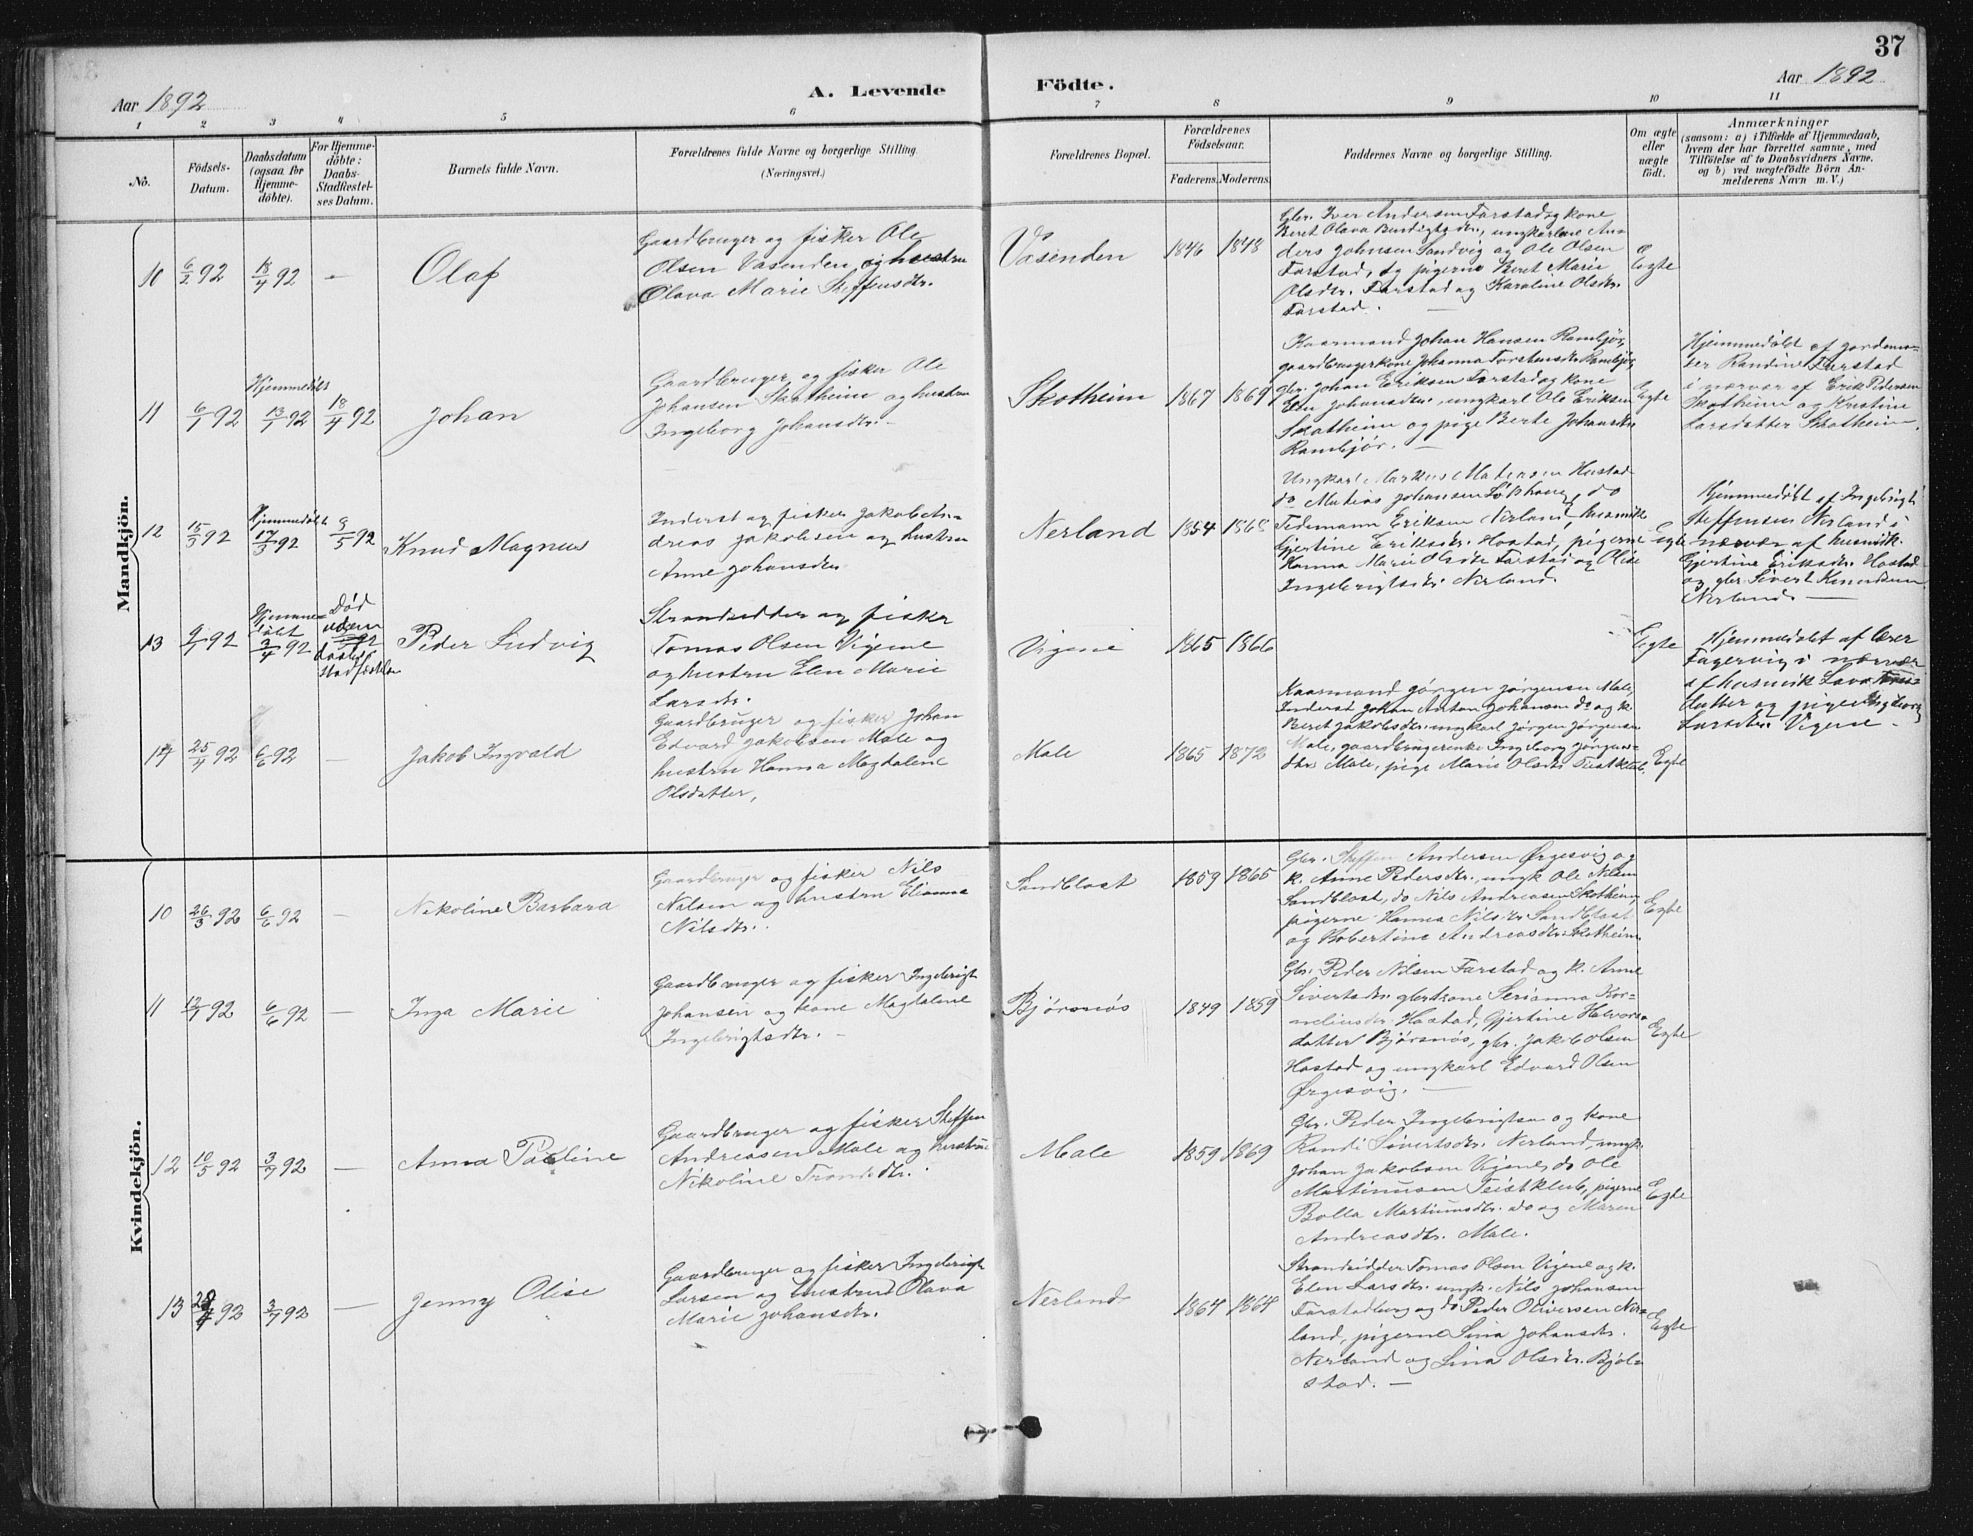 37
Aar 1892
A. Levende
Födte.
Aar 1892
1 2 3 4 5 6 7 8 9 10 11
No.
Födsels-
Datum.
Daabsdatum
(ogsaa for
Hjemme-
döbte).
For Hjemme-
döbte:
Daabs-
Stadfæstel-
ses Datum.
Barnets fulde Navn.
Forældrenes fulde Navne og borgerlige Stilling.
(Næringsvei.)
Forældrenes Bopæl.
Forældrenes
Födselsaar.
Faderens. Moderens.
Faddernes Navne og borgerlige Stilling.
Om ægte
eller
uægte
födt.
Anmærkninger
(saasom: a) i Tilfælde af Hjemmedaab,
hvem der har forrettet samme, med
Tilföielse af to Daabsvidners Navne,
og b) ved uægtefödte Börn An-
melderens Navn m. V.)
Mandkjön.
10
6/2 92
18/4 92
-
Olaf
Gaardbruger og fisker Ole
Olsen Vasenden og hustru
Olava Marie Steffensdtr.
Vasenden
1846 1848
Gbr. Iver Andersen Farstad og kone
Beret Olava Bendigtsdtr., ungkarlene An-
ders Johnsen Sandvig og Ole Olsen
Farstad, og pigerne Beret Marie
Olsdtr. Farstad og Karoline Olsdtr.
Farstad. -
Egte
11
6/1 92
Hjemmedøbt
13/1 92
18/4 92
Johan
Gaardbruger og fisker Ole
Johansen Skotheim og hustru
Ingeborg Johansdtr.
Skotheim
1867 1869
Kaarmand Johan Hansen Rambjør,
gaardbrugerkone Johanna Torstensdr. Rambjør,
gbr. Johan Eriksen Farstad og kone
Elen Johansdtr., ungkarl Ole Eriksen
Skotheim og pige Berte Johansdtr.
Rambjør. -
Egte
Hjemmedøbt af jordemo-
der Randine Farstad
i nærvær af Erik Pedersen
Skotheim og Kristine
Larsdatter Skotheim.
12
15/3 92
Hjemmedøbt
17/3 92
8/5 92
Knud Magnus
Inderst og fisker Jakob An-
dreas Jakobsen og hustru
Anne Johansdtr.
Nerland
1854 1868
Ungkarl Markus Madsen Hustad
do Matias Johansen Løkhaug, do
Tedemann Eriksen Nerland, husmk.
Gjertine Eriksdtr. Hostad, pigerne
Hanna Marie Olsdtr Farstad og Olise
Ingebrigtsdtr. Nerland.
Egte
Hjemmedøbt af Ingebrigt
Steffensen Nerland i
nærvær af husmdk.
Gjertine Eriksdtr. Hostad
og gbr. Sivert Knudsen
Nerland -
13
9/1 92
Hjemme-
døbt
3/4 92
Død
uden
daabs
stadfæstelse
Peder Ludvig
Strandsidder og fisker
Tomas Olsen Vigene
og hustru Elen Marie
Larsdtr.
Vigene
1865 1866
Egte
Hjemmedøbt af lærer
Fagervig i nærvær
af husmdk Lava
datter og pige Ingeborg
Larsdtr. Vigene -
14
25/4 92
6/6 92
-
Jakob Ingvald
Gaardbruger og fisker Johan
Edvard Jakobsen Male og
hustru Hanna Magdalene
Olsdatter,
Male
1865 1872
Kaarmand Jørgen Jørgensen Male,
Inderst Johan Anton Johansen do og k.
Beret Jakobsdtr. ungkarl Jørgen Jørgensen
Male, gaardbrugerenke Ingeborg Jørgens-
dtr. Male, pige Marie Olsdtr Teistklub.
Egte
Kvindekjön.
10
26/3 92
6/6 92
-
Nikoline Barbara
Gaardbruger og fisker Nils
Nilsen og hustru Elianna
Nilsdtr.
Sandblast
1859 1865
Gbr. Steffen Andersen Ørgesvig og
k. Anne Pedersdtr., ungk Ole Nilsen
Sandblast, do Nils Andreasen Skotheim
pigerne Hanna Nilsdtr Sandblast
og Robertine Andreasdtr. Skotheim
Egte
11
12/1 92
6/6 92
-
Inga Marie
Gaardbruger og fisker Ingebrigt
Johansen og kone Magdalene
Ingebrigtsdtr. -
Bjørsnøs
1849 1859
Gbr. Peder Nilsen Farstad og k. Anne
Sivertsdtr. gbrkone Serianna Kor-
neliusdtr. Hostad, Gjertine Halvors-
datter Bjørsnøs, gbr. Jakob Olsen
Hostad og ungkarl Edvard Olsen
Ørgesvig. -
Egte
12
10/5 92
3/7 92
-
Anna Pauline
Gaardbruger og fisker Steffen
Andreasen Male og hustru
Nikoline Trondsdtr.
Male
1859 1869
Gbr. Peder Ingebrigtsen og kone
Randi Sivertsdtr. Nerland, ungk.
Johan Jakobsen Vigene, do Ole
Martinusen Teistklub, pigerne
Bolla Martinusdtr. do og Maren
Andreasdtr. Male.
Egte
13
92
3/7 92
-
Jenny Olise
Gaardbruger og fisker Ingebrigt
Larsen og hustru Olava
Marie Johansdtr.
Nerland
1864 1864
Strandsidder Tomas Olsen Vigene og k.
Elen Larsdtr. ungk. Nils Johansen
Farstadberg og do Peder Oliversen Ner-
land, pigerne Sina Johansdtr.
Nerland og Lina Olsdtr. Bjøl-
stad. -
Egte